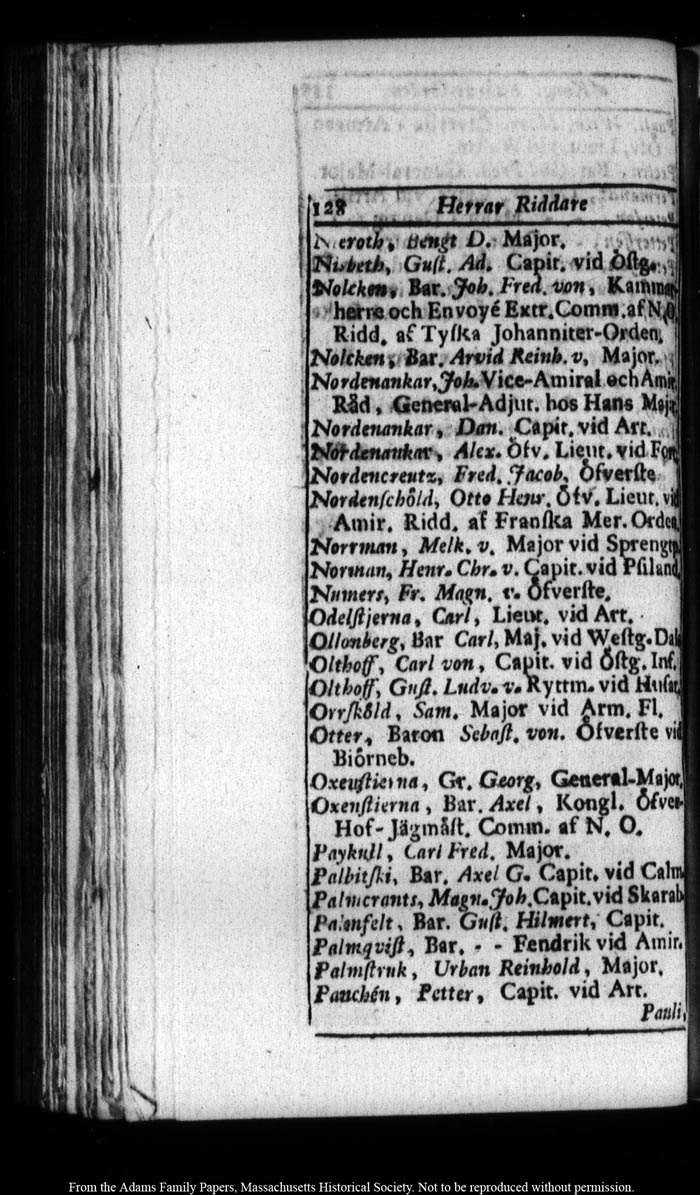 128 Herrar Riddare
Nieroth, Bengt D. Major.
Nisbeth, Guſt. Ad. Capit. vid Öſtg.
Nolcken, Bar. Joh. Fred. von, Kammar-
herre och Envoyé Extr. Comm. af N.O.
Ridd. af Tyſka Johanniter-Orden.
Nolcken, Bar. Arvid Reinh. v. Major.
Nordenankar, Joh. Vice-Amiral och Amir.
Råd, General-Adjut. hos Hans Maj:t
Nordenankar, Dan. Capit. vid Art.
Nordenankar, Alex. Öfv. Lieut. vid Fort.
Nordencreutz, Fred. Jacob, Öfverſte
Nordenſchöld, Otto Henr. Öfv. Lieut. vid
Amir. Ridd. af Franſka Mer. Orden.
Norrman, Melk. v. Major vid Sprengtp.
Norman, Henr. Chr. v. Capit. vid Pſiland.
Numers, Fr. Magn. v. Öfverſte.
Odelſtjerna, Carl, Lieut. vid Art.
Ollonberg, Bar Carl, Maj. vid Weſtg. Dal
Olthoff, Carl von, Capit. vid Öſtg. Inf.
Olthoff, Guſt. Ludv. v. Ryttm. vid Huſar.
Orrſköld, Sam. Major vid Arm. Fl.
Otter, Baron Sebaſt. von. Öfverſte vid
Biörneb.
Oxenſtierna, Gr. Georg, General-Major.
Oxenſtierna, Bar. Axel, Kongl. Öfver-
Hof-Jägmäſt. Comm. af N. O.
Paykull, Carl Fred. Major.
Palbitſki, Bar. Axel G. Capit. vid Calm.
Palmcrants, Magn. Joh. Capit. vid Skarab.
Palmfelt, Bar. Guſt. Hilmert, Capit.
Palmqviſt, Bar. - - Fendrik vid Amir.
Palmſtruk, Urban Reinhold, Major.
Pauchén, Petter, Capit. vid Art.
Pauli,
From the Adams Family Papers, Massachusetts Historical Society. Not to be reproduced without permission.